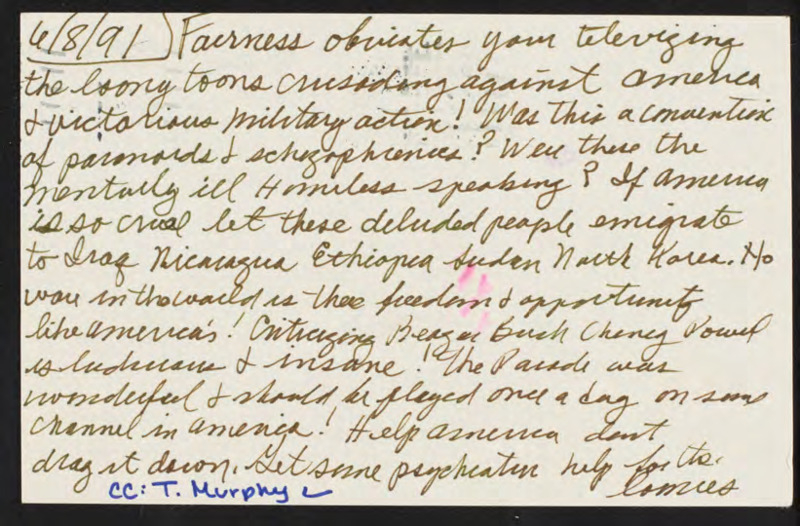 6/8/91 Fairness obviates your televizing
the loony toons crusading against america
& victorious military action! Was this a convention
of paranoids & schizophrenics? Were these the
mentally ill Homeless speaking? If america
is so cruel let these deluded people emigrate
to Iraq Nicaragua Ethiopia Sudan North Korea. No
ware in the world is thee freedom & opportunity
like america's! Criticizing Reagan Bush Cheney Powel
is ludicrous & insane! The Parade was
wonderful & should be played once a day on some
channel in america! Help america dont
drag it down. Get some psychiatric help for the
loonies
CC: T. Murphy